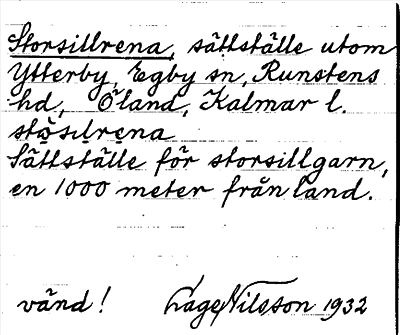 Storsillrena, sättställe utom
Ytterby, Egby sn, Runstens
hd., Öland, Kalmar l.
stösılrena
Sättställe för storsillgarn,
en 1000 meter från land.
vänd! Lage Nilsson 1932